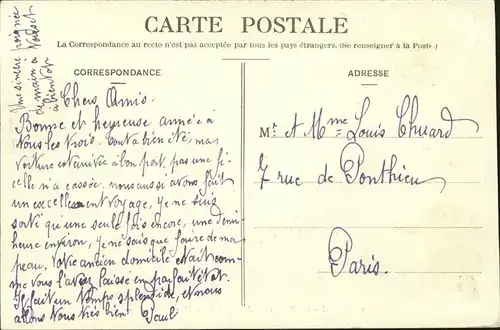 CARTE POSTALE
La Correspondance au recto n'est pas acceptée par tous les pays étrangers. (Se renseigner à la Poste.)
CORRESPONDANCE
ADRESSE
Une sincère poignée
de main à
à bientôt
Chers Amis.
Bonne et heureuse année à
vous les trois. Tout a bien été, ma
voiture est arrivée à bon port, pas une fi-
celle n'a cassée, nous aussi avons fait
un excellent voyage, je ne suis
sorti qu'une seule fois encore, une demi
heure environ, je ne sais que faire de ma
peau. Votre ancien domicile était com-
me vous l'avez laissé en parfait état.
Il fait un temps splendide, et nous
allons tous très bien Paul
Mr A Mme Louis Chuard
7 rue de Ponthieu
Paris.